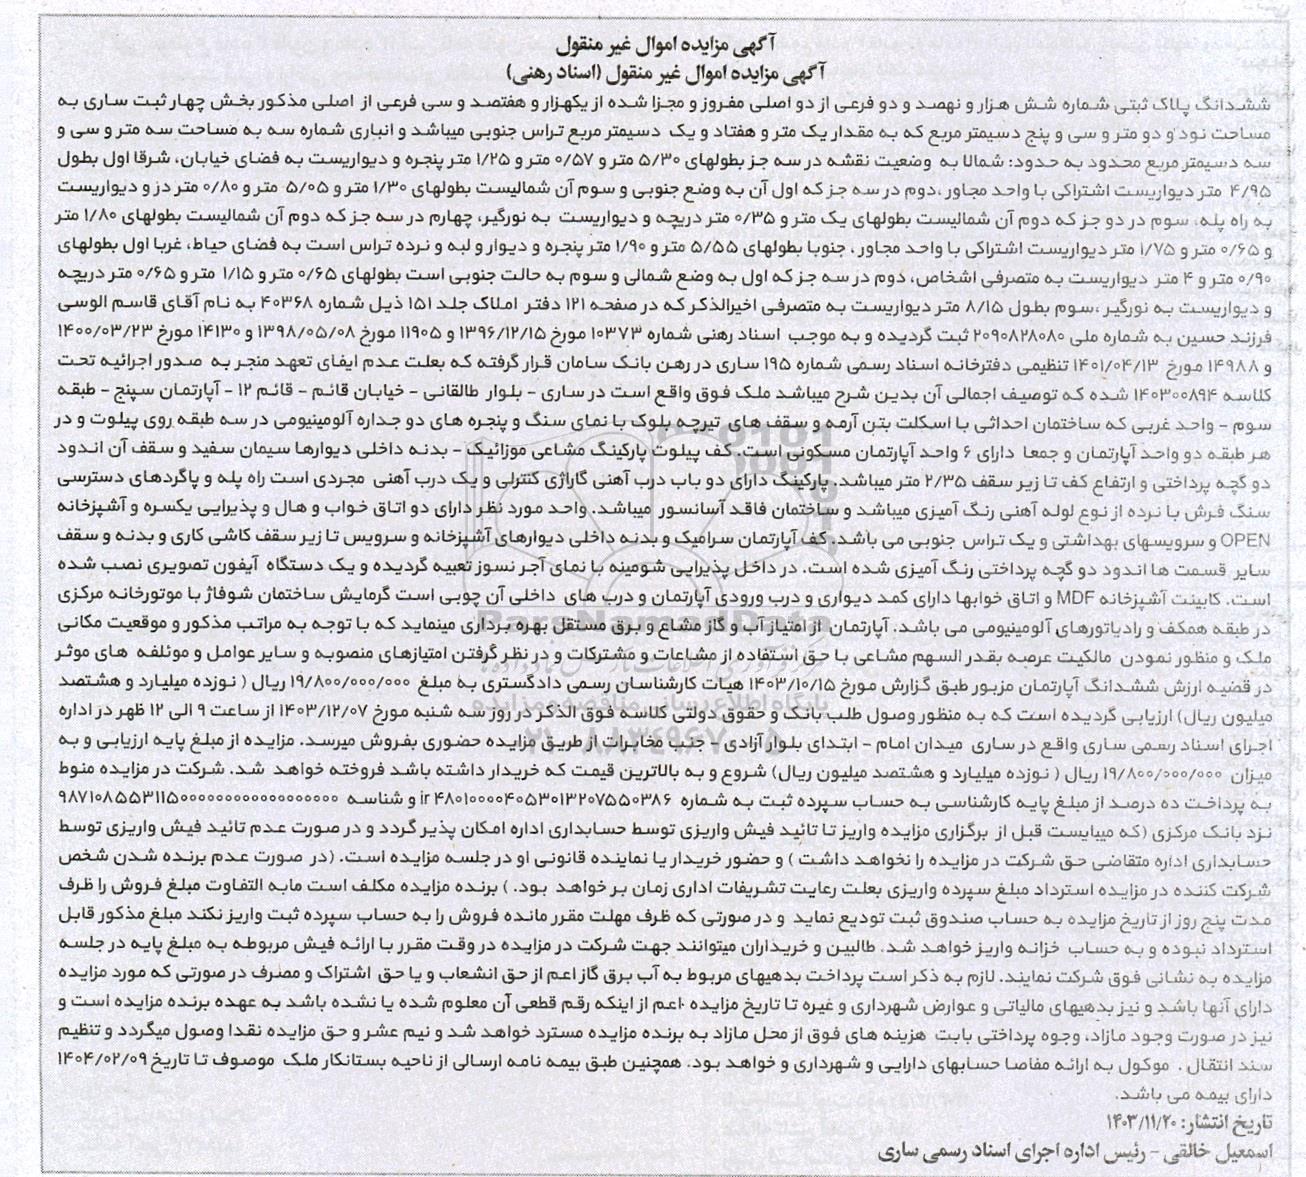 آگهی مزایده اموال غیر منقول
آگهی مزایده اموال غیر منقول (اسناد رهنی)
ششدانگ پلاک ثبتی شماره شش هزار و نهصد و دو فرعی از دو اصلی مفروز و مجزا شده از یکهزار و هفتصد و سی فرعی از اصلی مذکور بخش چهار ثبت ساری به
مساحت نود و دو متر و سی و پنج دسیمتر مربع که به مقدار یک متر و هفتاد و یک دسیمتر مربع تراس جنوبی میباشد و انباری شماره سه به مساحت سه متر و سی و
سه دسیمتر مربع محدود به حدود: شمالا به وضعیت نقشه در سه جز بطولهای ۵/۳۰ متر و ۰/۵۷ متر و ۱/۲۵ متر پنجره و دیواریست به فضای خیابان، شرقا اول بطول
۴/۹۵ متر دیواریست اشتراکی با واحد مجاور ،دوم در سه جز که اول آن به وضع جنوبی و سوم آن شمالیست بطولهای ۱/۳۰ متر و ۵/۰۵ متر و ۰/۸۰ متر درز و دیواریست
به راه پله، سوم در دو جز که دوم آن شمالیست بطولهای یک متر و ۰/۳۵ متر دریچه و دیواریست به نورگیر، چهارم در سه جز که دوم آن شمالیست بطولهای ۱/۸۰ متر
و ۰/۶۵ متر و ۱/۷۵ متر دیواریست اشتراکی با واحد مجاور ، جنوبا بطولهای ۵/۵۵ متر و ۱/۹۰ متر پنجره و دیوار و لبه و نرده تراس است به فضای حیاط، غربا اول بطولهای
۰/۹۰ متر و ۴ متر دیواریست به متصرفی اشخاص، دوم در سه جز که اول به وضع شمالی و سوم به حالت جنوبی است بطولهای ۰/۶۵ متر و ۱/۱۵ متر و ۰/۶۵ متر دریچه
و دیواریست به نورگیر ،سوم بطول ۸/۱۵ متر دیواریست به متصرفی اخیرالذکر که در صفحه ۱۲۱ دفتر املاک جلد ۱۵۱ ذیل شماره ۴۰۳۶۸ به نام آقای قاسم الوسی
فرزند حسین به شماره ملی ۲۰۹۰۸۲۸۰۸۰ ثبت گردیده و به موجب اسناد رهنی شماره ۱۰۳۷۳ مورخ ۱۳۹۶/۱۲/۱۵ و ۱۱۹۰۵ مورخ ۱۳۹۸/۰۵/۰۸ و ۱۴۱۳۰ مورخ ۱۴۰۰/۰۳/۲۳
و ۱۴۹۸۸ مورخ ۱۴۰۱/۰۴/۱۳ تنظیمی دفترخانه اسناد رسمی شماره ۱۹۵ ساری در رهن بانک سامان قرار گرفته که بعلت عدم ایفای تعهد منجر به صدور اجرائیه تحت
کلاسه ۱۴۰۳۰۰۸۹۴ شده که توصیف اجمالی آن بدین شرح میباشد ملک فوق واقع است در ساری - بلوار طالقانی - خیابان قائم - قائم ۱۲ - آپارتمان سپنج - طبقه
سوم - واحد غربی که ساختمان احداثی با اسکلت بتن آرمه و سقف های تیرچه بلوک با نمای سنگ و پنجره های دو جداره آلومینیومی در سه طبقه روی پیلوت و در
هر طبقه دو واحد آپارتمان و جمعا دارای ۶ واحد آپارتمان مسکونی است. کف پیلوت پارکینگ مشاعی موزائیک - بدنه داخلی دیوارها سیمان سفید و سقف آن اندود
دو گچه پرداختی و ارتفاع کف تا زیر سقف ۲/۳۵ متر میباشد. پارکینگ دارای دو باب درب آهنی گاراژی کنترلی و یک درب آهنی مجردی است راه پله و پاگردهای دسترسی
سنگ فرش با نرده از نوع لوله آهنی رنگ آمیزی میباشد و ساختمان فاقد آسانسور میباشد. واحد مورد نظر دارای دو اتاق خواب و هال و پذیرایی یکسره و آشپزخانه
OPEN و سرویسهای بهداشتی و یک تراس جنوبی می باشد. کف آپارتمان سرامیک و بدنه داخلی دیوارهای آشپزخانه و سرویس تا زیر سقف کاشی کاری و بدنه و سقف
سایر قسمت ها اندود دو گچه پرداختی رنگ آمیزی شده است. در داخل پذیرایی شومینه با نمای آجر نسوز تعبیه گردیده و یک دستگاه آیفون تصویری نصب شده
است. کابینت آشپزخانه MDF و اتاق خوابها دارای کمد دیواری و درب ورودی آپارتمان و درب های داخلی آن چوبی است گرمایش ساختمان شوفاژ با موتورخانه مرکزی
در طبقه همکف و رادیاتورهای آلومینیومی می باشد. آپارتمان از امتیاز آب و گاز مشاع و برق مستقل بهره برداری مینماید که با توجه به مراتب مذکور و موقعیت مکانی
ملک و منظور نمودن مالکیت عرصه بقدر السهم مشاعی با حق استفاده از مشاعات و مشترکات و در نظر گرفتن امتیازهای منصوبه و سایر عوامل و موئلفه های موثر
در قضیه ارزش ششدانگ آپارتمان مزبور طبق گزارش مورخ ۱۴۰۳/۱۰/۱۵ هیات کارشناسان رسمی دادگستری به مبلغ ۱۹/۸۰۰/۰۰۰/۰۰۰ ریال ( نوزده میلیارد و هشتصد
میلیون ریال) ارزیابی گردیده است که به منظور وصول طلب بانک و حقوق دولتی کلاسه فوق الذکر در روز سه شنبه مورخ ۱۴۰۳/۱۲/۰۷ از ساعت ۹ الی ۱۲ ظهر در اداره
اجرای اسناد رسمی ساری واقع در ساری میدان امام - ابتدای بلوار آزادی - جنب مخابرات از طریق مزایده حضوری بفروش میرسد. مزایده از مبلغ پایه ارزیابی و به
میزان ۱۹/۸۰۰/۰۰۰/۰۰۰ ریال ( نوزده میلیارد و هشتصد میلیون ریال) شروع و به بالاترین قیمت که خریدار داشته باشد فروخته خواهد شد. شرکت در مزایده منوط
به پرداخت ده درصد از مبلغ پایه کارشناسی به حساب سپرده ثبت به شماره ir ۴۸۰۱۰۰۰۰۴۰۵۳۰۱۳۲۰۷۵۵۰۳۸۶ و شناسه ۹۸۷۱۰۸۵۵۳۱۱۵۰۰۰۰۰۰۰۰۰۰۰۰۰۰۰۰۰
نزد بانک مرکزی (که میبایست قبل از برگزاری مزایده واریز تا تائید فیش واریزی توسط حسابداری اداره امکان پذیر گردد و در صورت عدم تائید فیش واریزی توسط
حسابداری اداره متقاضی حق شرکت در مزایده را نخواهد داشت ) و حضور خریدار یا نماینده قانونی او در جلسه مزایده است. (در صورت عدم برنده شدن شخص
شرکت کننده در مزایده استرداد مبلغ سپرده واریزی بعلت رعایت تشریفات اداری زمان بر خواهد بود. ) برنده مزایده مکلف است مابه التفاوت مبلغ فروش را ظرف
مدت پنج روز از تاریخ مزایده به حساب صندوق ثبت تودیع نماید و در صورتی که ظرف مهلت مقرر مانده فروش را به حساب سپرده ثبت واریز نکند مبلغ مذکور قابل
استرداد نبوده و به حساب خزانه واریز خواهد شد. طالبین و خریداران میتوانند جهت شرکت در مزایده در وقت مقرر با ارائه فیش مربوطه به مبلغ پایه در جلسه
مزایده به نشانی فوق شرکت نمایند. لازم به ذکر است پرداخت بدهیهای مربوط به آب برق گاز اعم از حق انشعاب و یا حق اشتراک و مصرف در صورتی که مورد مزایده
دارای آنها باشد و نیز بدهیهای مالیاتی و عوارض شهرداری و غیره تا تاریخ مزایده اعم از اینکه رقم قطعی آن معلوم شده یا نشده باشد به عهده برنده مزایده است و
نیز در صورت وجود مازاد، وجوه پرداختی بابت هزینه های فوق از محل مازاد به برنده مزایده مسترد خواهد شد و نیم عشر و حق مزایده نقدا وصول میگردد و تنظیم
سند انتقال . موکول به ارائه مفاصا حسابهای دارایی و شهرداری و خواهد بود. همچنین طبق بیمه نامه ارسالی از ناحیه بستانکار ملک موصوف تا تاریخ ۱۴۰۴/۰۲/۰۹
دارای بیمه می باشد.
تاریخ انتشار: ۱۴۰۳/۱۱/۲۰
اسمعیل خالقی - رئیس اداره اجرای اسناد رسمی ساری
ParsNamadData
پایگاه اطلاع رسانی مناقصه و مزایده